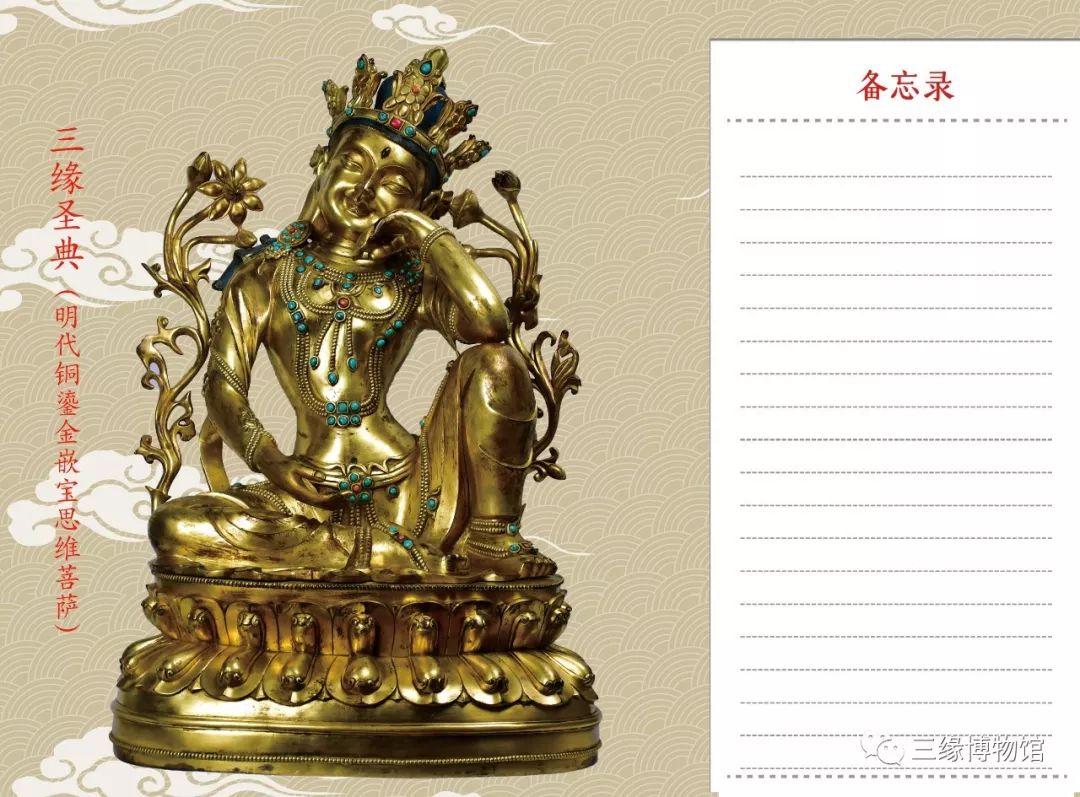 三缘圣典（明代铜鎏金嵌宝思维菩萨）
备忘录
三缘博物馆